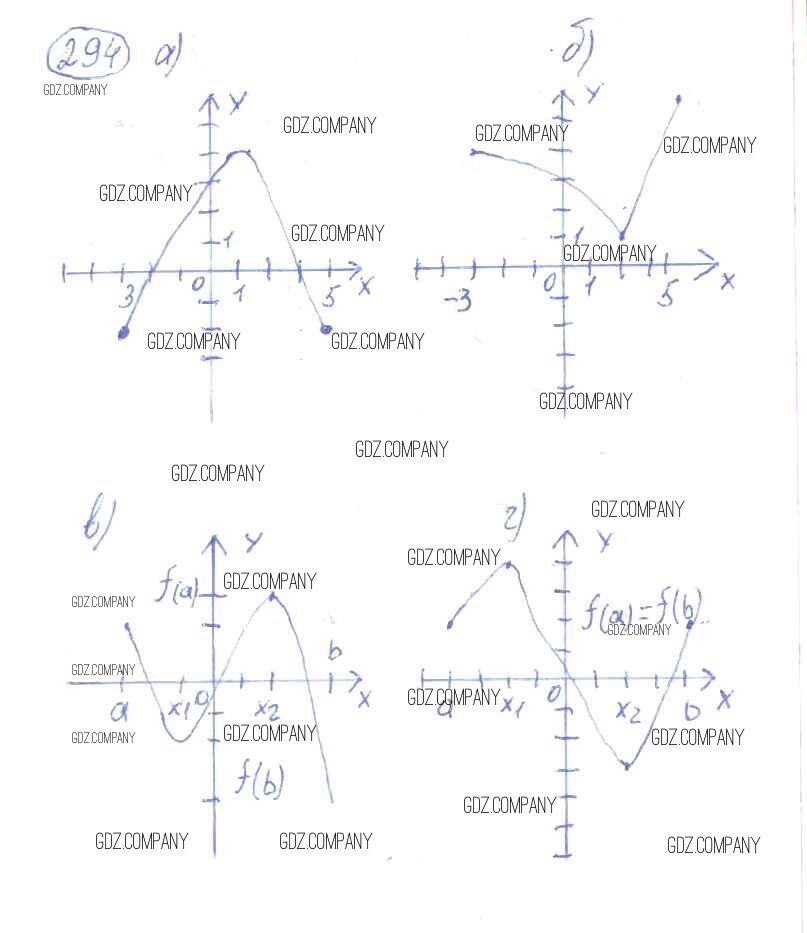 294 а) б)
GDZ.COMPANY
У У
GDZ.COMPANY GDZ.COMPANY
GDZ.COMPANY
GDZ.COMPANY
GDZ.COMPANY
1 1
GDZ.COMPANY
3 0 1 5 X
-3 0 1 5 X
GDZ.COMPANY GDZ.COMPANY
GDZ.COMPANY
GDZ.COMPANY
GDZ.COMPANY
в) г)
GDZ.COMPANY
У У
GDZ.COMPANY
f(a) GDZ.COMPANY
GDZ.COMPANY
f(a)=f(b)
GDZ.COMPANY
b
GDZ.COMPANY
GDZ.COMPANY
a x1 0 x2 X
a x1 0 x2 b X
GDZ.COMPANY GDZ.COMPANY GDZ.COMPANY
f(b)
GDZ.COMPANY
GDZ.COMPANY GDZ.COMPANY GDZ.COMPANY